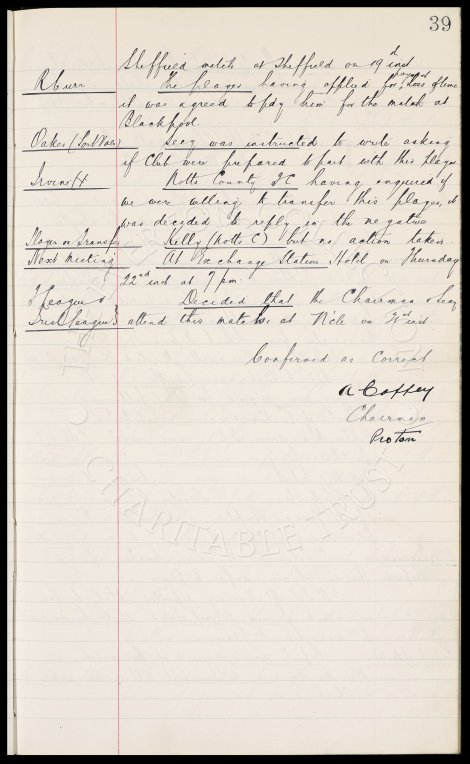 39
Sheffield match at Sheffield on 19th inst
R Curr The player having applied for payment loss of time
it was agreed to pay him for the match at
Blackpool.
Oakes (Port Vale) Secy was instructed to write asking
if Club were prepared to part with this player
Irvine Notts County FC having enquired if
we were willing to transfer this player, it
was decided to reply in the negative
Kelly (Notts C) but no action taken
Next Meeting At Exchange Station Hotel on Thursday
22nd inst at 7 pm.
F League v Decided that the Chairman & Secy
Irish League attend this match at N'cle on inst.
Confirmed as Correct
A Coffey
Chairman
Pro tem
CHARITABLE TRUST